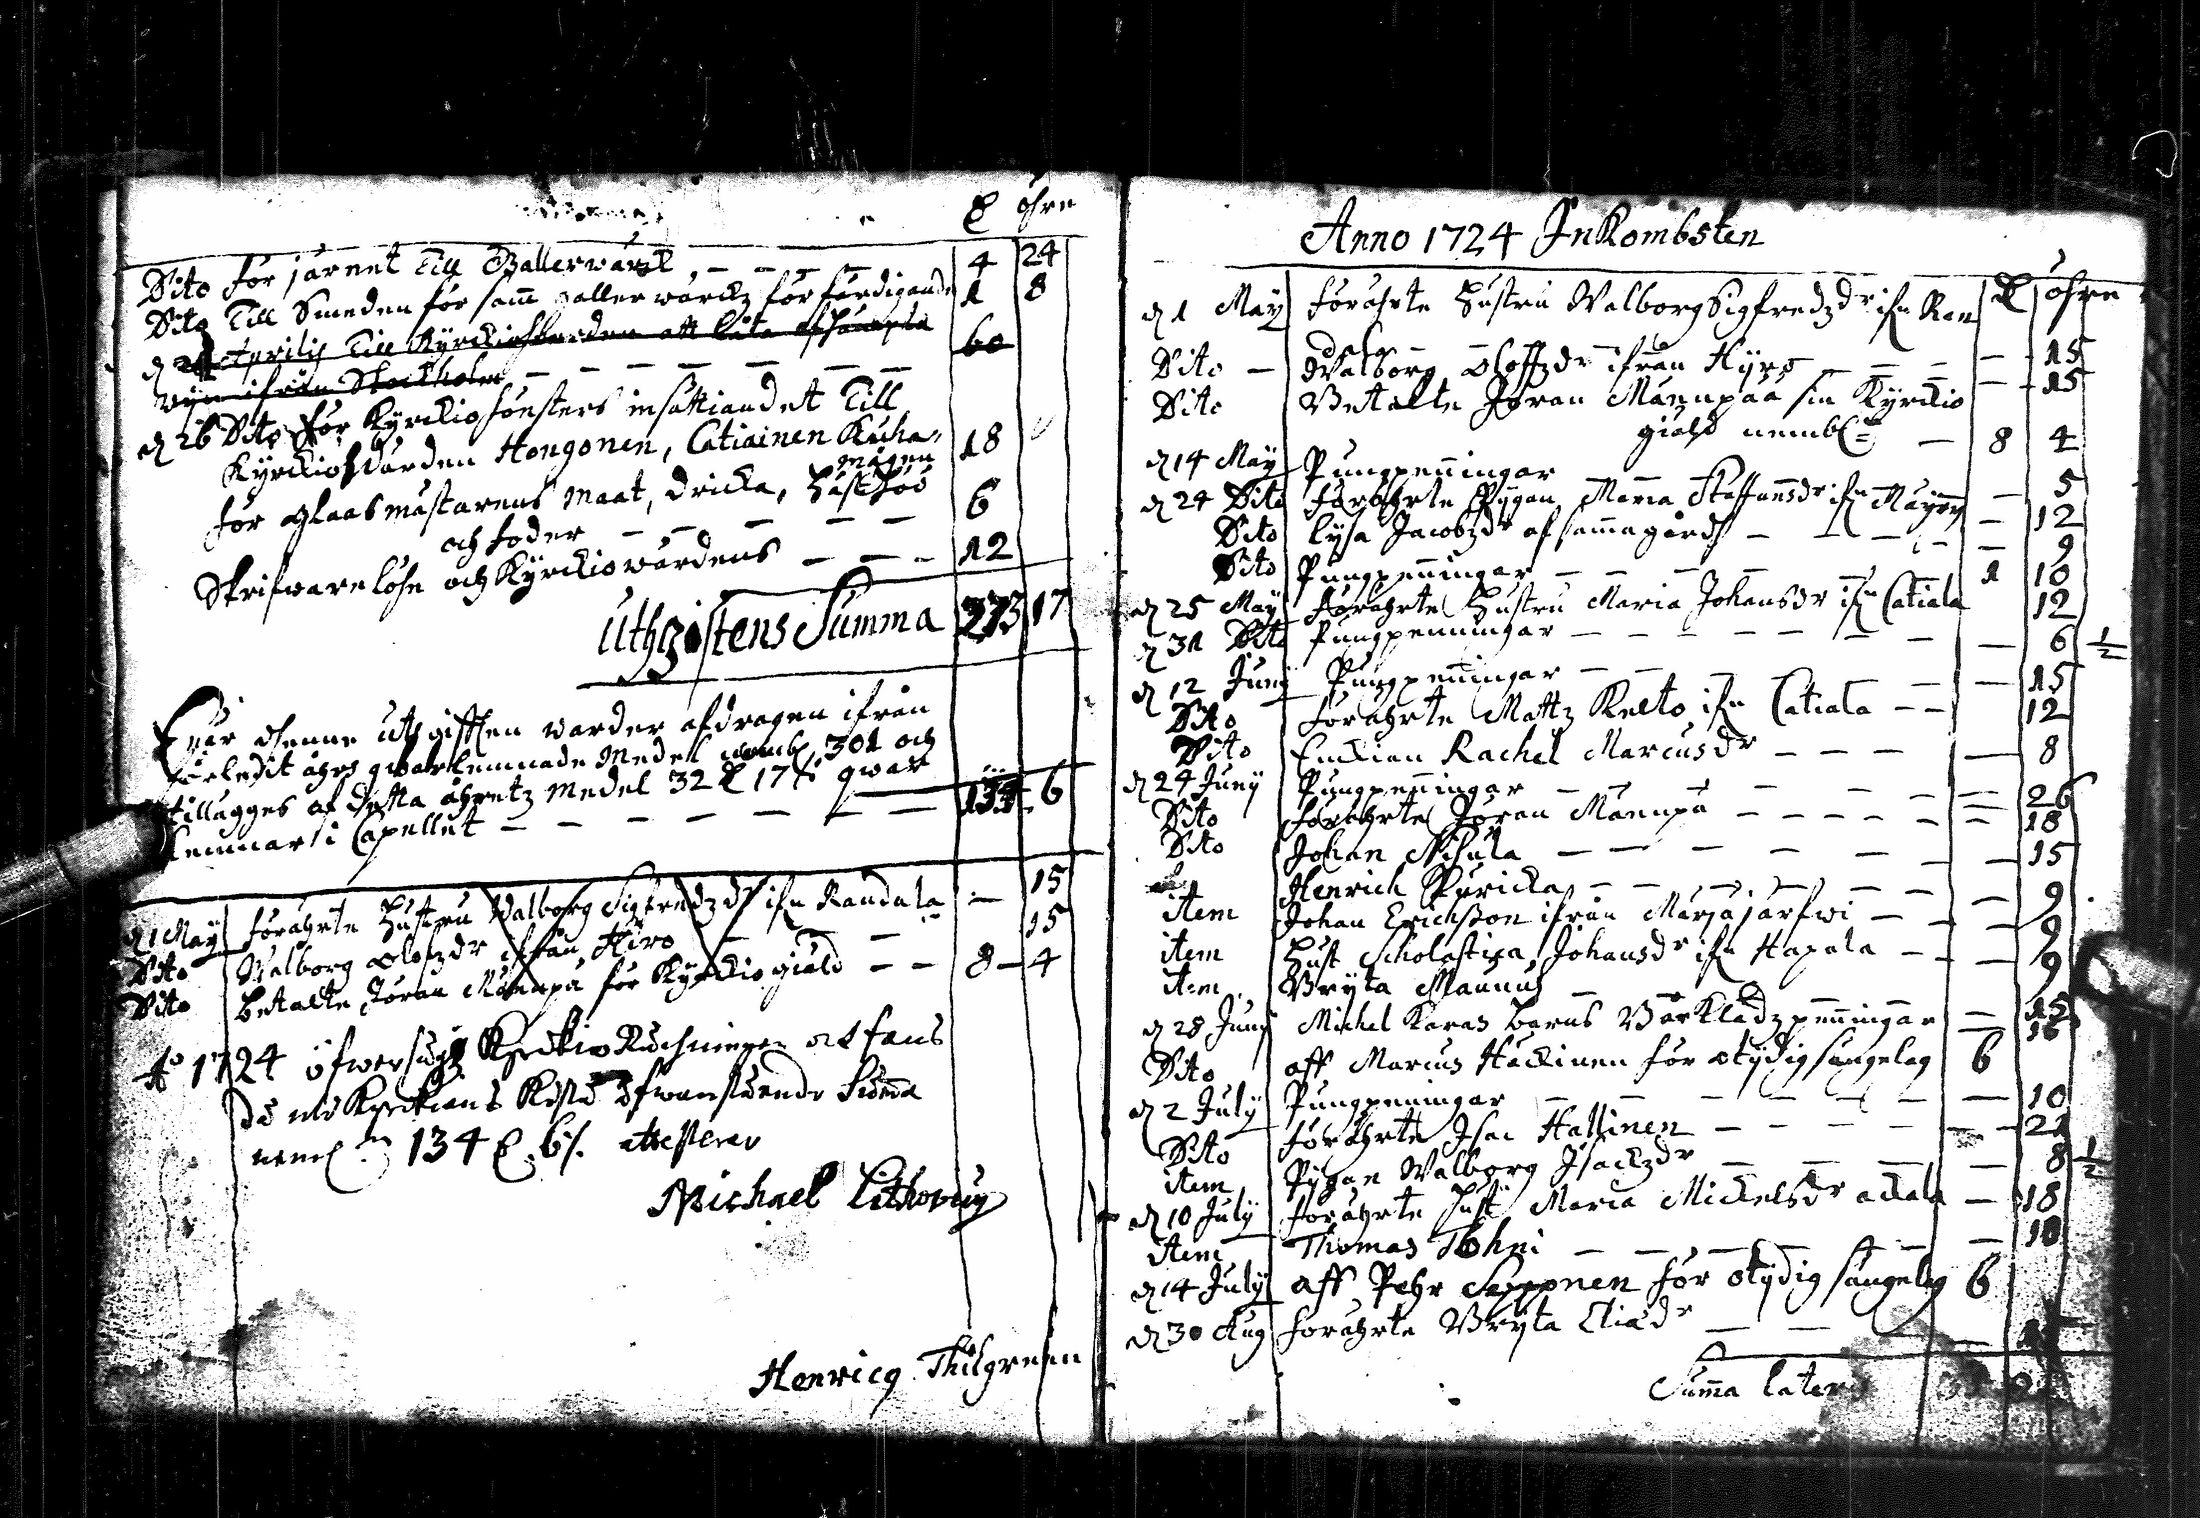 öhre
Dito för järnet till Gallerwärck, — — — 4 24
Dito till Smeden för sam̅ gallerwärckz förfärdigande 1 8
Aprilis till Kyrckiowärden att låta 60
wijn ifrån Stockholm — — — — — —
d 26 Dito för Kyrckiofönsters insättiandet till
Kyrckiowärden Hongonen, Catiainen Kuha-
mågen 18
för glaasmästarens maat, dricka, hästhöö
och foder — — — — — 6
Skrifwarelöhn och Kyrckiowärdens — — — 12
Uthgiftens Summa 273 17
denne uthgifften warder afdragen ifrån
förledit åhrs qwarlemnade medel 301 och
tillägges af detta åhretz medel 32 17 qwar
lemnar i Capellet — — — — — — — 134 6
d 1 May förährte Hustru Walborg Sigfredzdr ifn Randala — 15
Dito Walborg Olofzdr ifrån Hiro — — — 15
Dito betalte Jöran Mänupä för Kyrckiogiäld — — 8 — 4
Ao 1724 öfwersågz Kyrckio Räckningen och fans
då uti Kyrckians Kista ofwanstående Summa
134 6 attesterar
Michael Lithovius
Henricq Thilgreen
Anno 1724 Inkombsten
öhre
d 1 May förährte Hustru Walborg Sigfredzdr ifn Ran
dala — — — — 15
Dito — Walborg Oloffzdr ifrån Hyro — — — 15
Dito Betalte Jöran Mänupää sin Kyrckio
giäld — 8 4
d 14 May Pungpen̅ingar — — — 5
d 24 Dito förährte Pygan Maria Staffansdr ifn — 12
Dito Lysa Jacobzdr af samma gård — — — — 9
Dito Pungpen̅ingar — — — — 1 10
d 25 May förährte Hustru Maria Johansdr ifn Catiala 12
d 31 Dito Pungpenningar — — — — — — — 6 ½
d 12 Junij Pungpen̅ingar — — — — — 15
Dito förährte Mattz Kelto ifn Catiala — — 12
Dito Enckian Rachel Marcusdr — — — — 8
d 24 Junij Pungpen̅ingar — — — — — — 26
Dito förährte Jöran Mänupä — — — — — — 18
Dito Johan Nihula — — — — — — — 15
Henrich Puricka — — — — — — — 9
item Johan Erichsson ifrån Marjajärfwi — — — 9
item Hust Scholastiza Johansdr ifn Hapala — — — 9
item Bryta Mannus — — 15
d 28 Junij Michel Karas barns Bårklädz pen̅ingar — 16
Dito aff Marcus Häckinen för otydig sängelag 6
d 2 July Pungpenningar — — — — — — 10
Dito förährte Isac Hallinen — — — — — 21
item Pygan Walborg Isackzdr — — — — 8 ½
d 10 July förährte Hust Maria Mickelsdr ackala — 18
item Thomas Tohni — — — — — — 18
d 14 July aff Pehr Seppnen för otydig sängelag 6
d 30 Aug förährte Bryta Eliædr — — —
Summa lateris